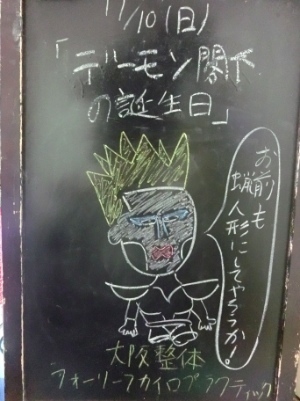 11/10(日)
「デーモン閣下
の誕生日」
お前も
蝋人形にしてやろうか!
大阪整体
フォーリーフカイロプラクティック